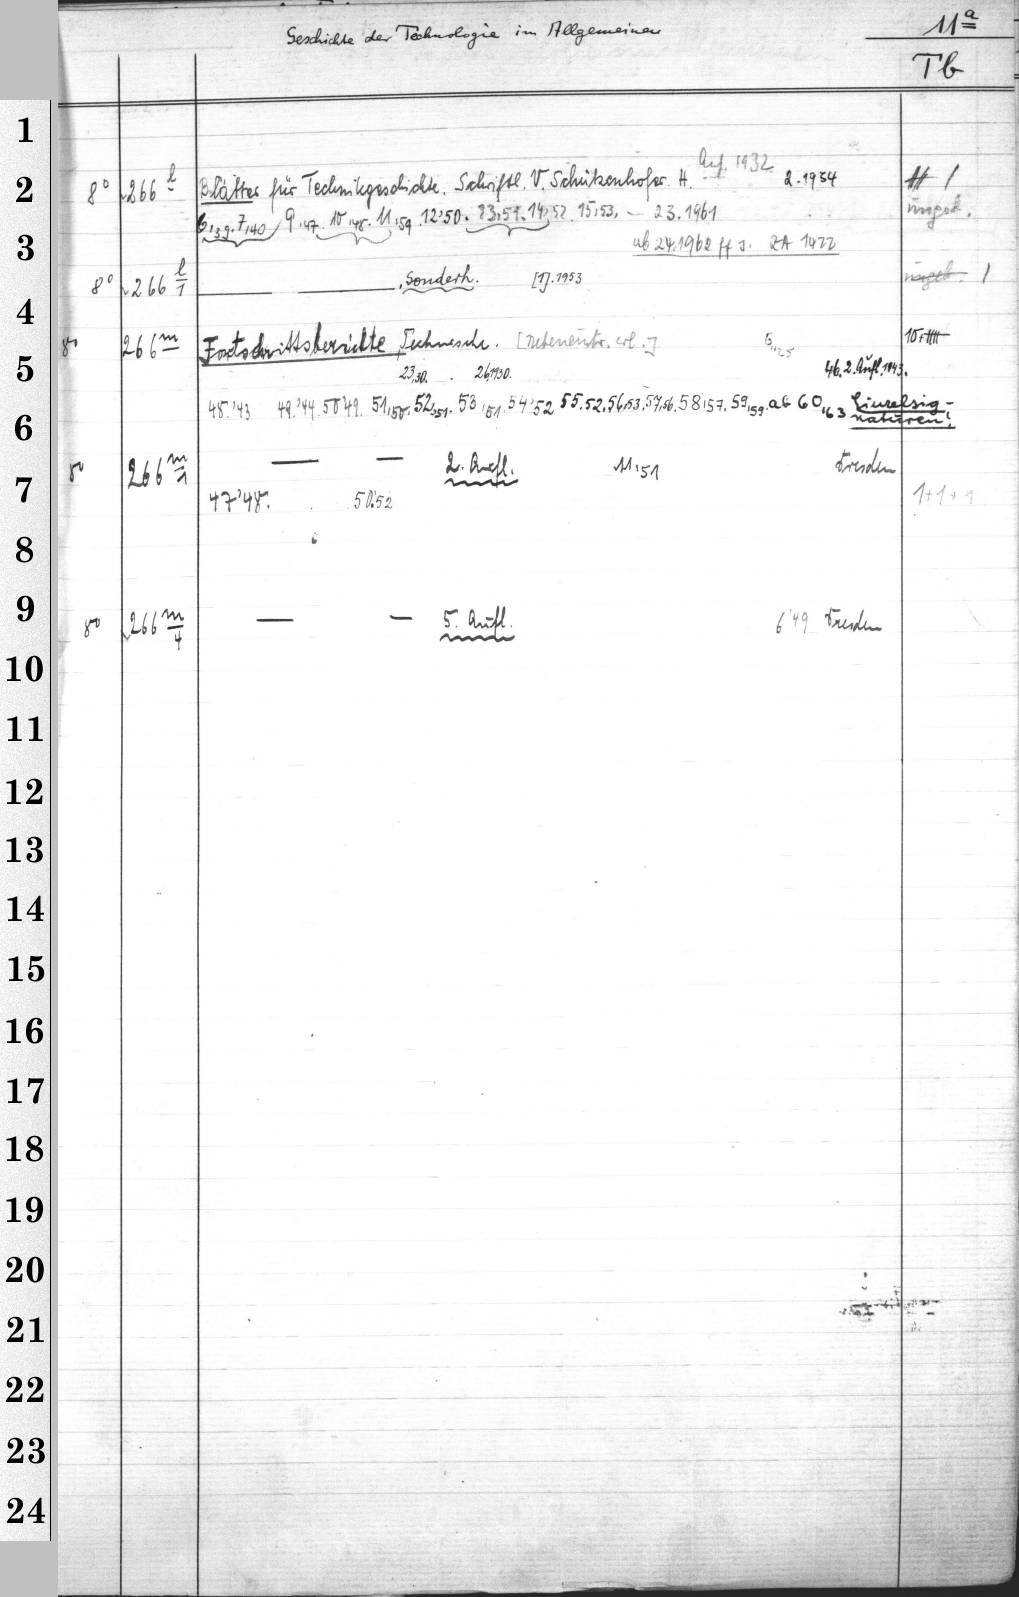 Geschichte der Technologie im Allgemeinen
11a
Tb
1
2
8° 266 l Blätter für Technikgeschichte. Schriftl. V. Schützenhofer. H. Auf. 1932 2.1934 H 1
6,39.7,40 9,47. 10,48. 11,59 12,50. 13,51. 14,52 15,53. – 23.1961 ungeb.
3
ab 24.1962 ff s. ZA 1422
8° 266 l/1 — — , Sonderh. [1]. 1953 ungeb. 1
4
8° 266 m Fortschrittsberichte, Technische.
5
23,30. 26,1930. 46. 2. Aufl. 1943.
48.'43 49.'44. 50'49. 51,50. 52,51. 53,51. 54'52 55.52. 56,53. 57,56. 58,57. 59,59. ab 60,63 Einzelsignaturen!
6
8° 266 m/1 — — 2. Aufl. 11,51 Dresden
7
47'48. 50.52 1+1+1
8
9
8° 266 m/4 — — 5. Aufl. 6'49 Dresden
10
11
12
13
14
15
16
17
18
19
20
21
22
23
24